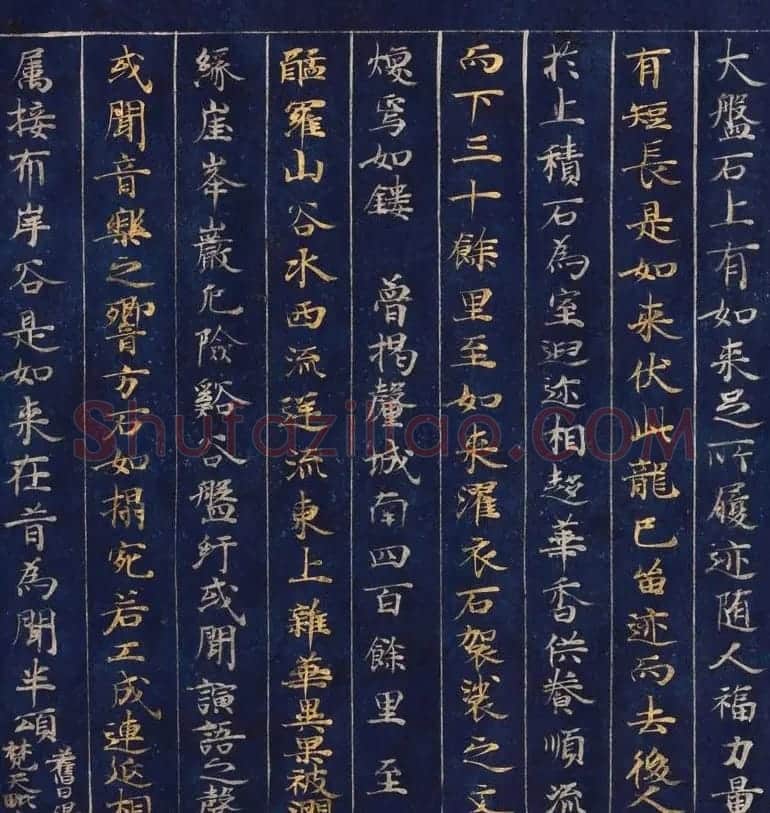 大盤石上有如来足所履迹随人福力量
有短長是如来伏此龍已留迹而去後人
於上積石為室遐迩相趍華香供養順流
而下三十餘里至如来濯衣石袈裟之文
焕焉如鏤　曽揭釐城南四百餘里　至
醯羅山谷水西流逆流東上雜華異果被澗
緣崖峯巖危險谿谷盤紆或聞諠語之聲
或聞音樂之響方石如榻宛若工成連延相
属接布岸谷是如来在昔為聞半頌
舊曰
梵天
Shufaziliao.COM